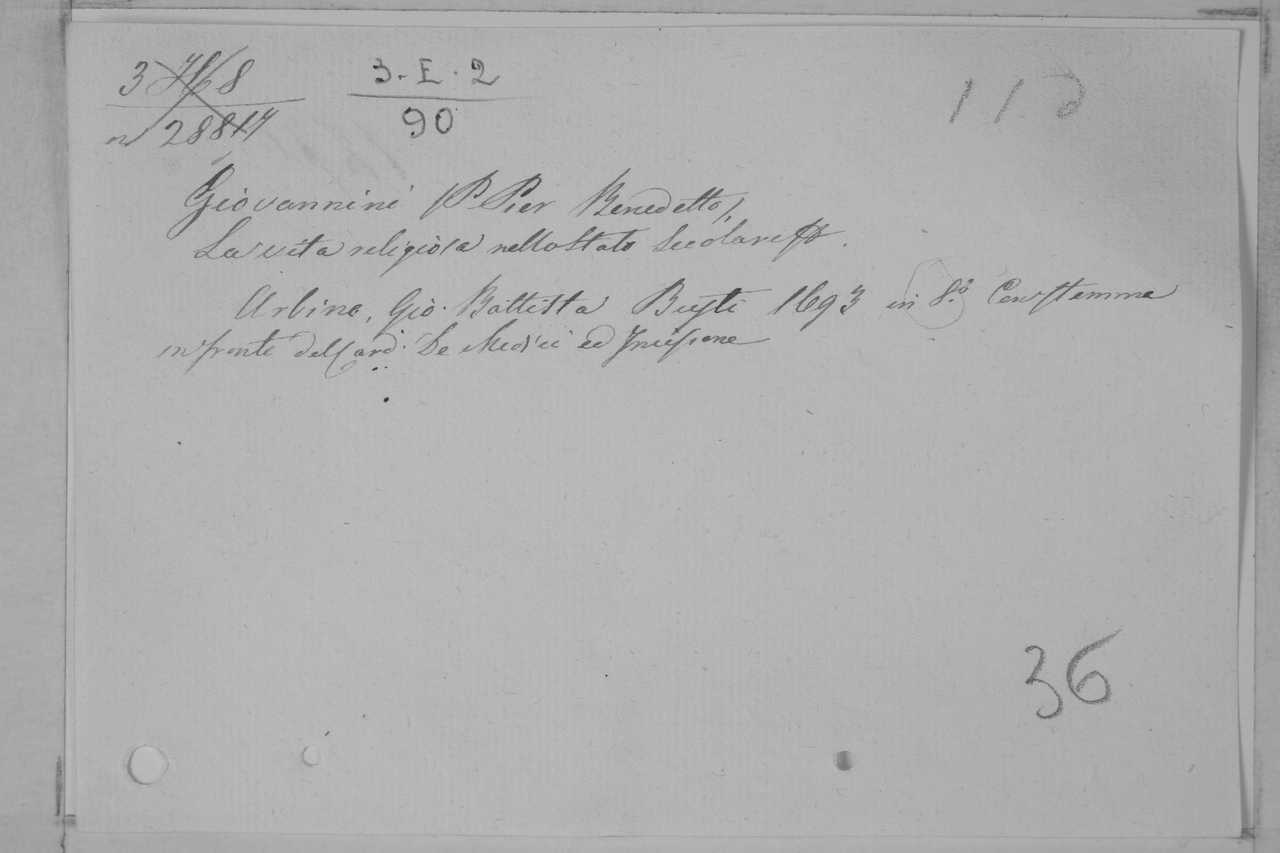 3 8
3. E. 2
n 28817
90
Giovannini (P. Pier Benedetto)
La vita religiosa nello Stato Secolare
Urbino, Gio. Battista Busti 1693 in 8.º Con stemma
in fronte del Card. De Medici ed Incisione
36